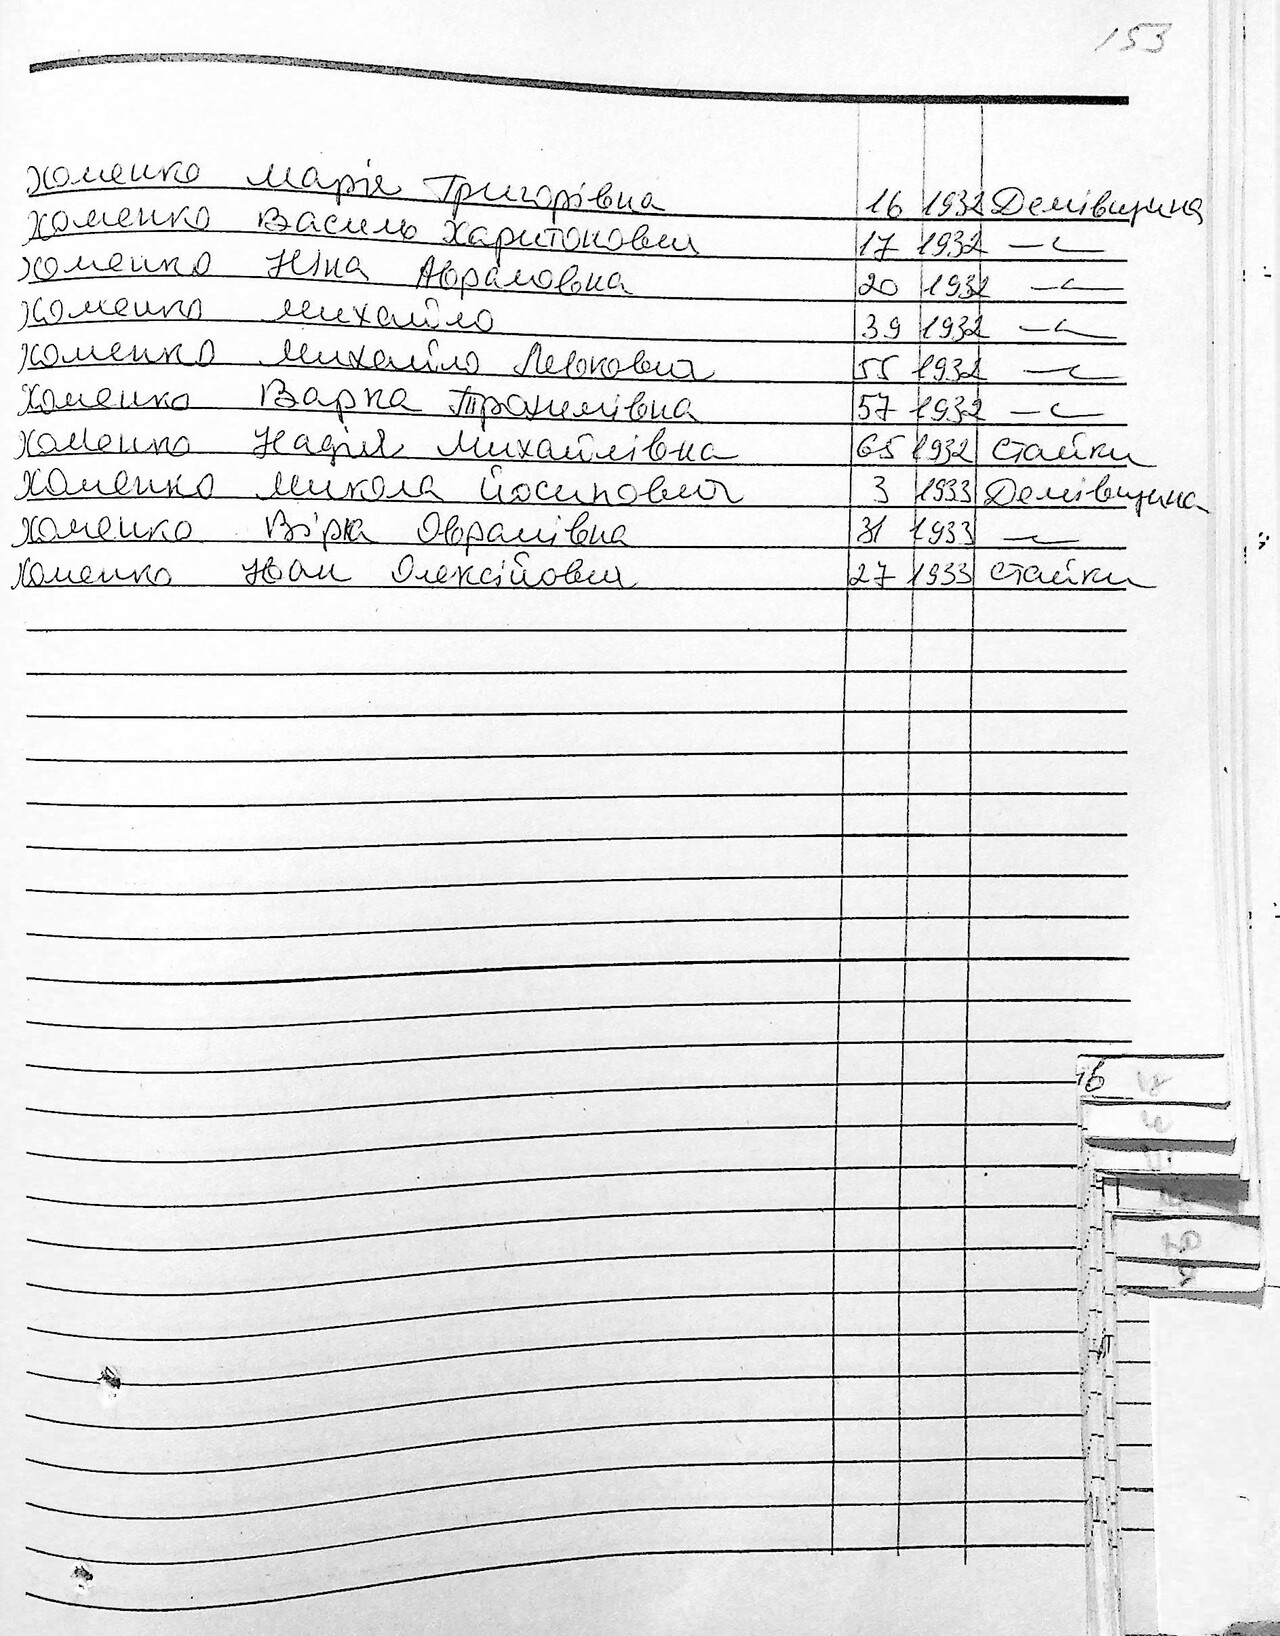 153
Хоменко Марія Григорівна 16 1932 Демівщина
Хоменко Василь Харитонович 17 1932 —〃—
Хоменко Ніна Аврамовна 20 1932 —〃—
Хоменко Михайло 39 1932 —〃—
Хоменко Михайло Левкович 55 1932 —〃—
Хоменко Варка Трохимівна 57 1932 —〃—
Хоменко Надія Михайлівна 65 1932 Стайки
Хоменко Микола Йосипович 3 1933 Демівщина
Хоменко Вірка Оврамівна 31 1933 —〃—
Хоменко Іван Олексійович 27 1933 Стайки